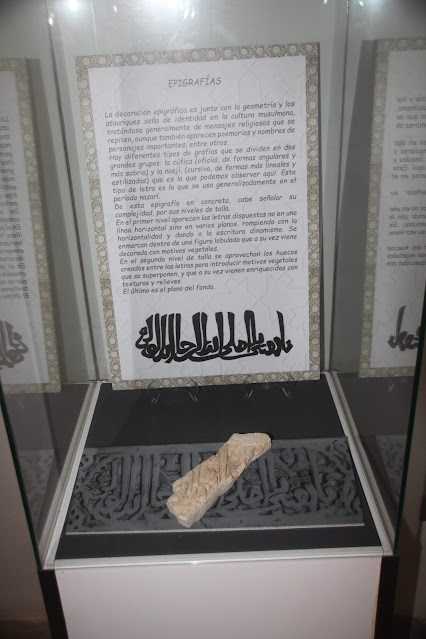 EPIGRAFÍAS
La decoración epigráfica es junto con la geometría y los
atauriques seña de identidad en la cultura musulmana,
tratándose generalmente de mensajes religiosos que se
repiten, aunque también aparecen poemarios y nombres de
personajes importantes, entre otros.
Hay diferentes tipos de grafías que se dividen en dos
grandes grupos: la cúfica (oficial, de formas angulares y
más sobria) y la nasjí, (cursiva, de formas más lineales y
estilizadas) que es la que podemos observar aquí. Este
tipo de letra es la que se usa generalizadamente en el
período nazarí.
De esta epigrafía en concreto, cabe señalar su
complejidad, por sus niveles de talla.
En el primer nivel aparecen las letras dispuestas no en una
línea horizontal sino en varios planos, rompiendo con la
horizontalidad y dando a la escritura dinamismo. Se
enmarcan dentro de una figura lobulada que a su vez viene
decorada con motivos vegetales.
En el segundo nivel de talla se aprovechan los huecos
creados entre las letras para introducir motivos vegetales
que se superponen, y que a su vez vienen enriquecidos con
texturas y relieves.
El último es el plano del fondo.